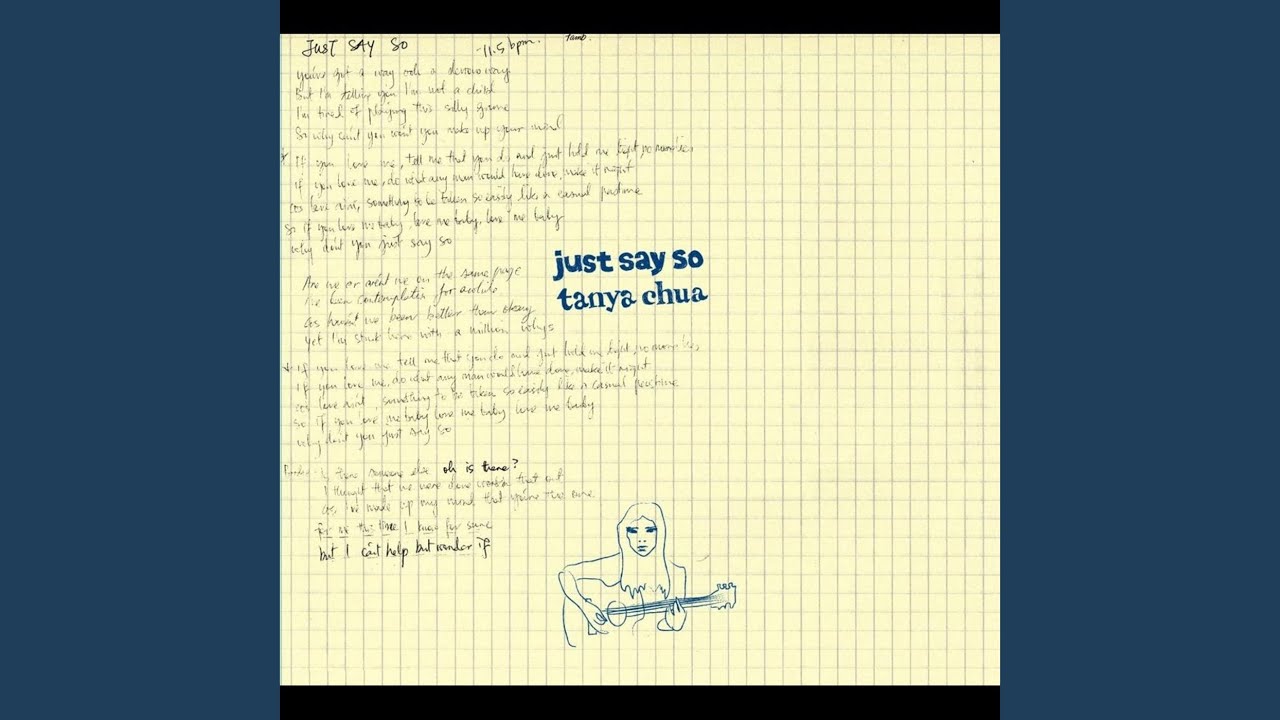 JUST SAY SO
-11.5 bpm.
Tamb.
You've got a way ooh a devious way
But I'm telling you I'm not a child
I'm tired of playing this silly game
So why can't you won't you make up your mind
If you love me, tell me that you do and just hold me tight, no more lies,
if you love me, do what any man would have done, make it right
cos love ain't, something to be taken so easily like a casual pastime
so if you love me baby, love me baby, love me baby
why don't you just say so
just say so
tanya chua
Are we or aren't we on the same page
I've been contemplating for awhile
cos haven't we been better than okay
yet I'm stuck here with a million whys
if you love me tell me that you do and just hold me tight, no more lies,
if you love me, do what any man would have done, make it right
cos love ain't, something to be taken so easily like a casual pastime
so if you love me baby love me baby love me baby
why don't you just say so
Is there someone else oh is there?
I thought that we were done workin' that out
cos I've made up my mind that you're the one
for me this time I know for sure
but I can't help but wonder if